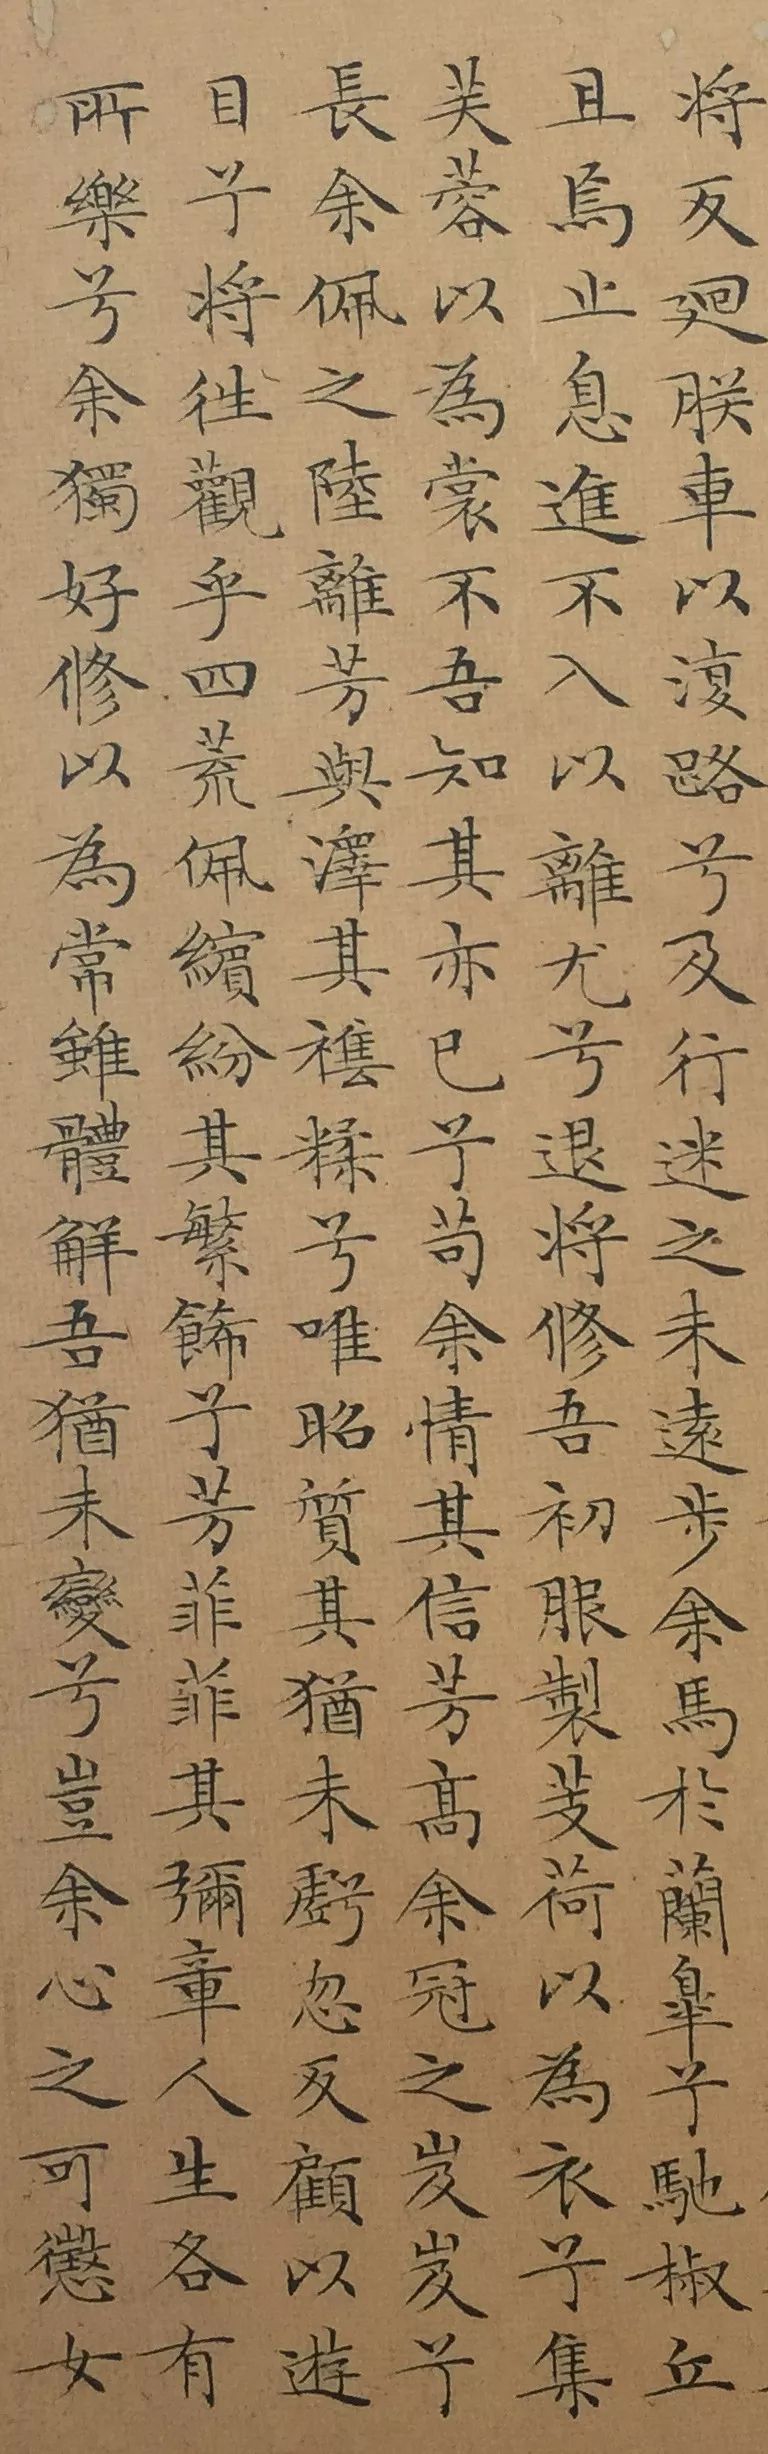 将反廻朕車以復路兮及行迷之未遠步余馬於蘭皋兮馳椒丘
且焉止息進不入以離尤兮退将修吾初服製芰荷以為衣兮集
芙蓉以為裳不吾知其亦已兮苟余情其信芳髙余冠之岌岌兮
長余佩之陸離芳與澤其襍糅兮唯昭質其猶未虧忽反顧以遊
目兮将徃觀乎四荒佩繽紛其繁飾兮芳菲菲其彌章人生各有
所樂兮余獨好修以為常雖體解吾猶未變兮豈余心之可懲女